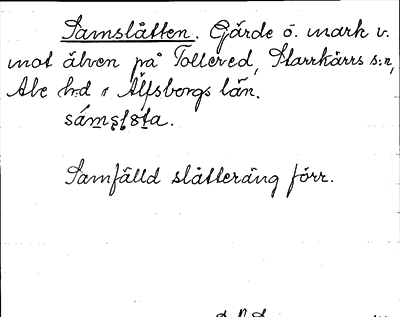 Samslåtten. Gärde ö. mark v.
mot älven på Tollered, Starrkärrs s:n,
Ale h:d i Älfsborgs län.
Samfälld slåtteräng förr.